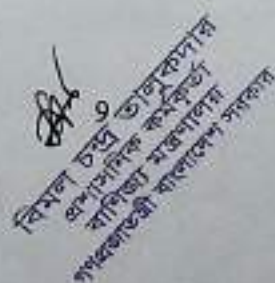 9
বিমল চন্দ্র তালুকদার
প্রশাসনিক কর্মকর্তা
বাণিজ্য মন্ত্রণালয়
গণপ্রজাতন্ত্রী বাংলাদেশ সরকার